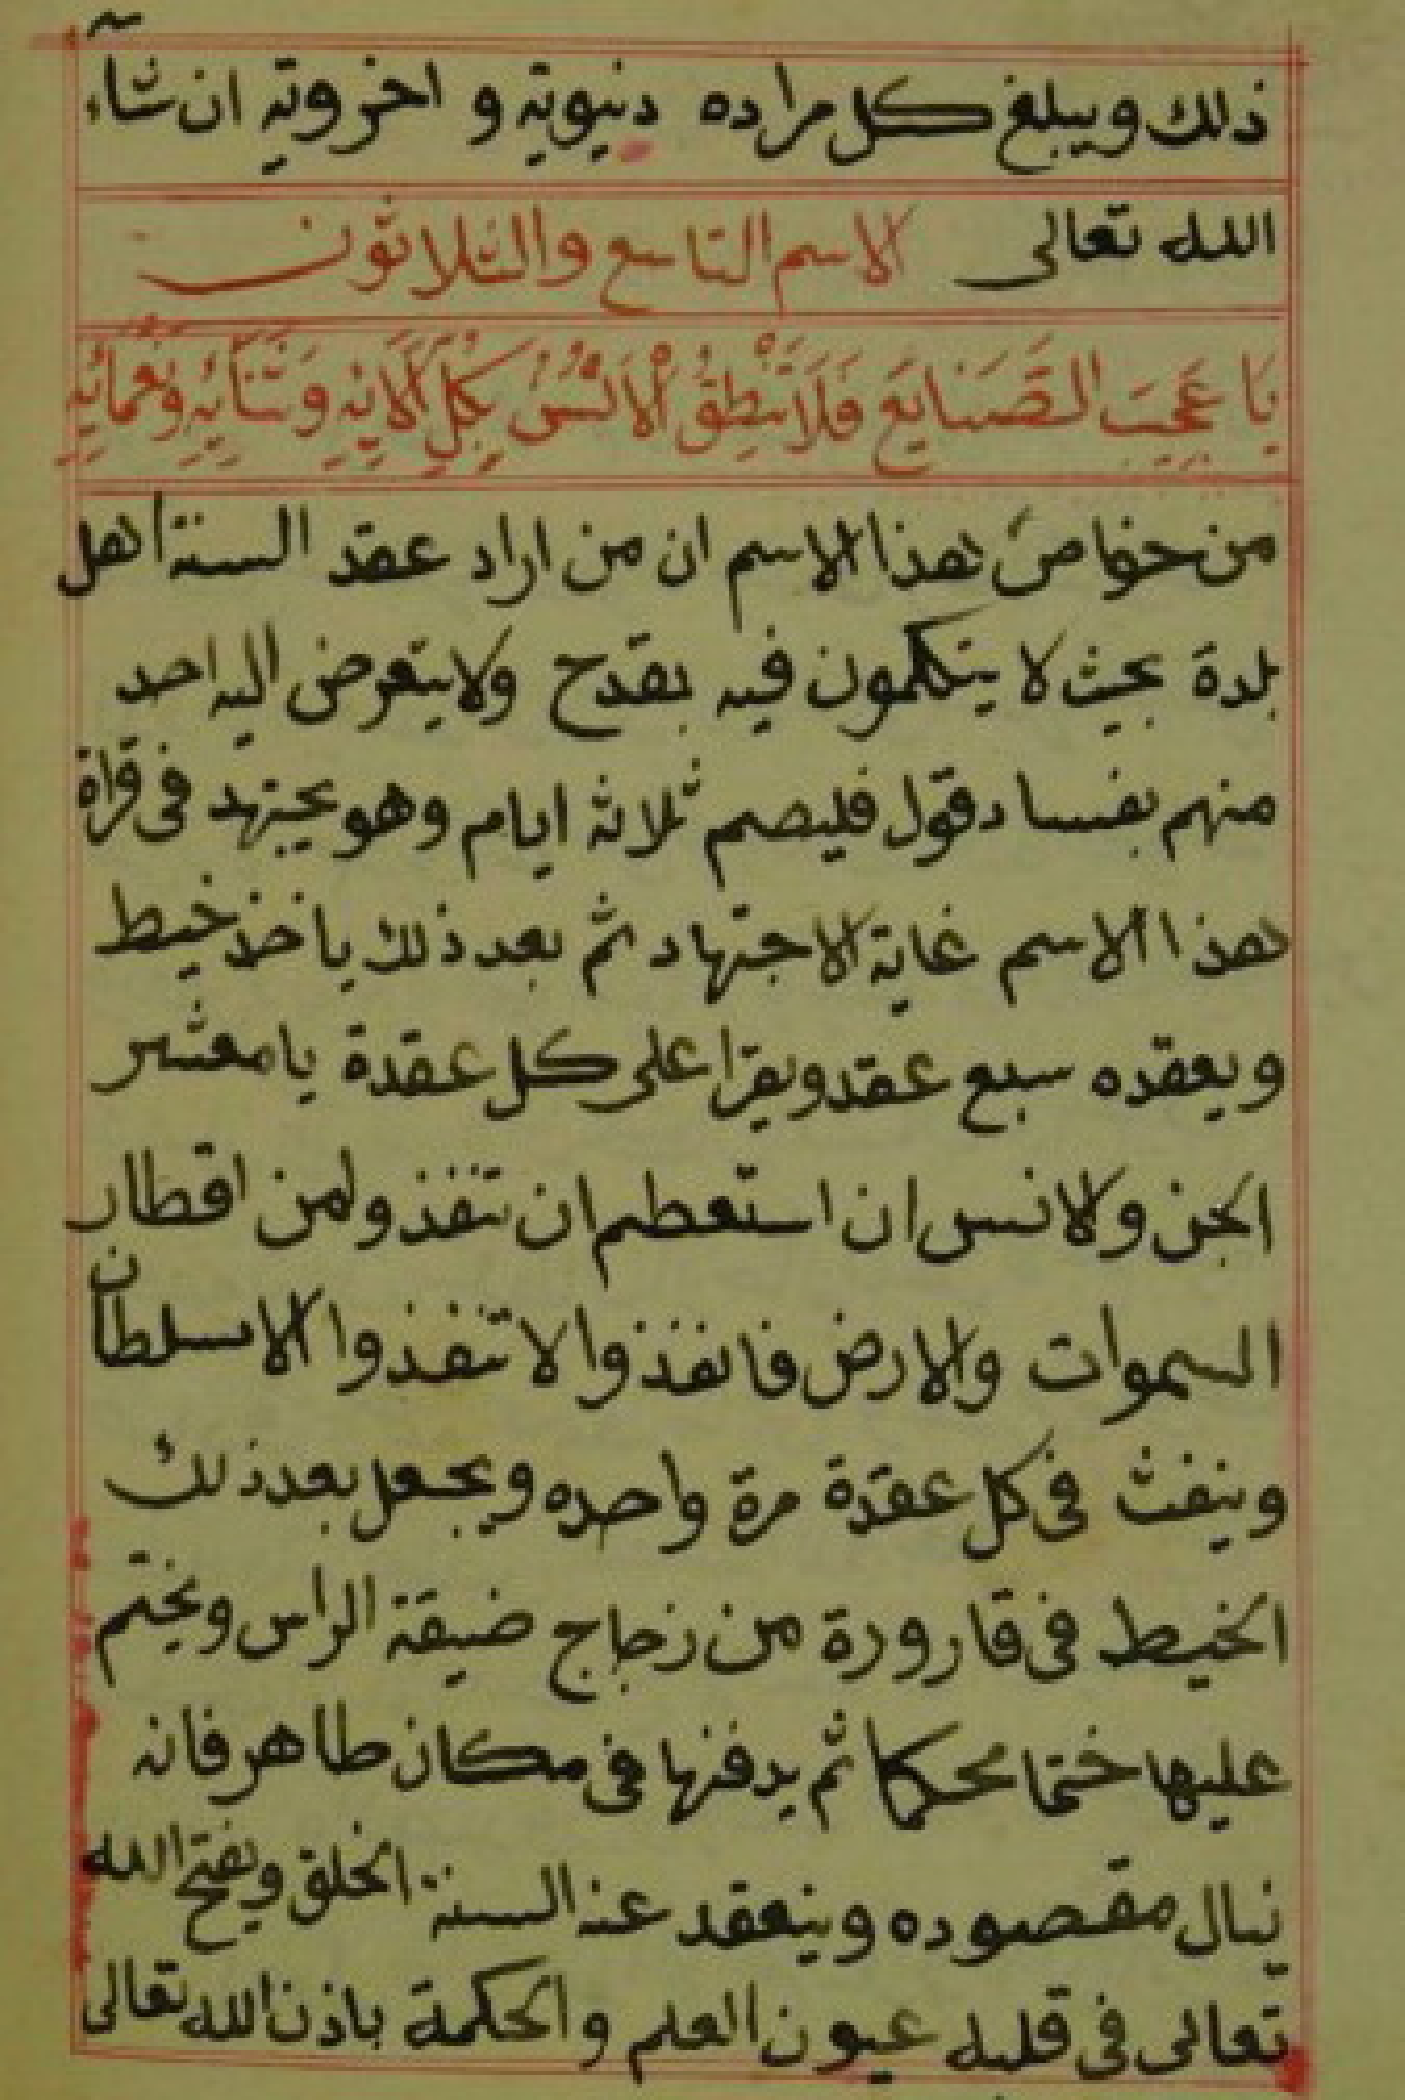 ذلك ويبلغ كل مراده دنيوية و اخروية ان شآء
الله تعالى الاسم التاسع والثلاثون
يَا عَجِيبَ الصَّنَايَعِ فَلَا تَنْطِقُ الْأَلْسُنُ بِكُلِّ آلَايِهِ وَثَنَآيِهِ وَنَعْمَائِهِ
من خواص هذا الاسم ان من اراد عقد السنة اهل
بلدة بحيث لا يتكلمون فيه بقدح ولا يتعرض اليه احد
منهم بفساد قول فليصم ثلاثة ايام وهو يجتهد فى قراة
هذا الاسم غاية الاجتهاد ثم بعد ذلك ياخذ خيط
ويعقده سبع عقد ويقرا على كل عقدة يا معشر
الجن ولانس ان استعطم ان تنفذو لمن اقطار
السموات والارض فانفذوا لا تنفذوا الا سلطان
وينفث فى كل عقدة مرة واحده ويجعل بعد ذلك
الخيط فى قارورة من زجاج ضيقة الراس ويختم
عليها ختما محكما ثم يدفنها فى مكان طاهر فانه
ينال مقصوده وينعقد عنه السنة الخلق ويفتح الله
تعالى فى قلبه عيون العلم والحكمة باذن الله تعالى